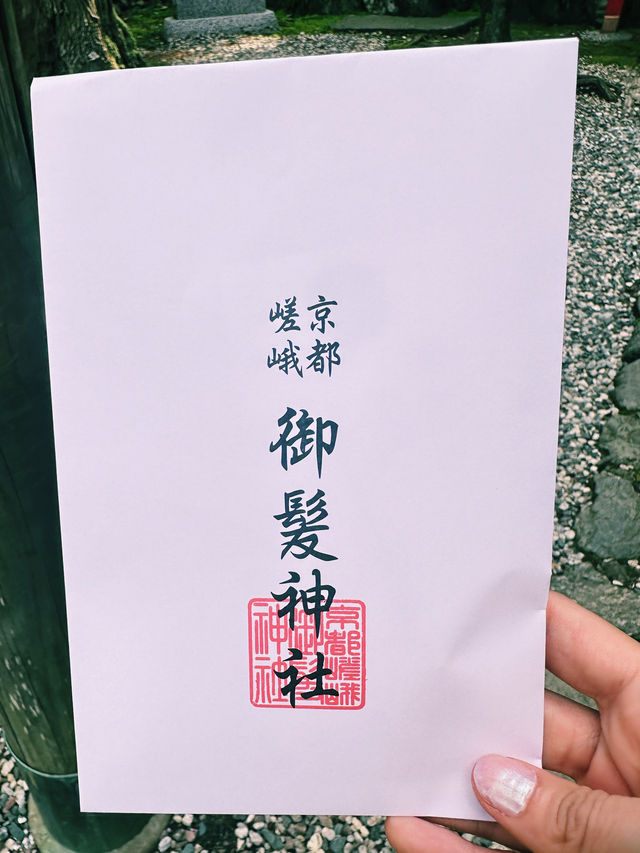 京都
嵯峨
御髪神社
京都嵯峨
御髪
神社